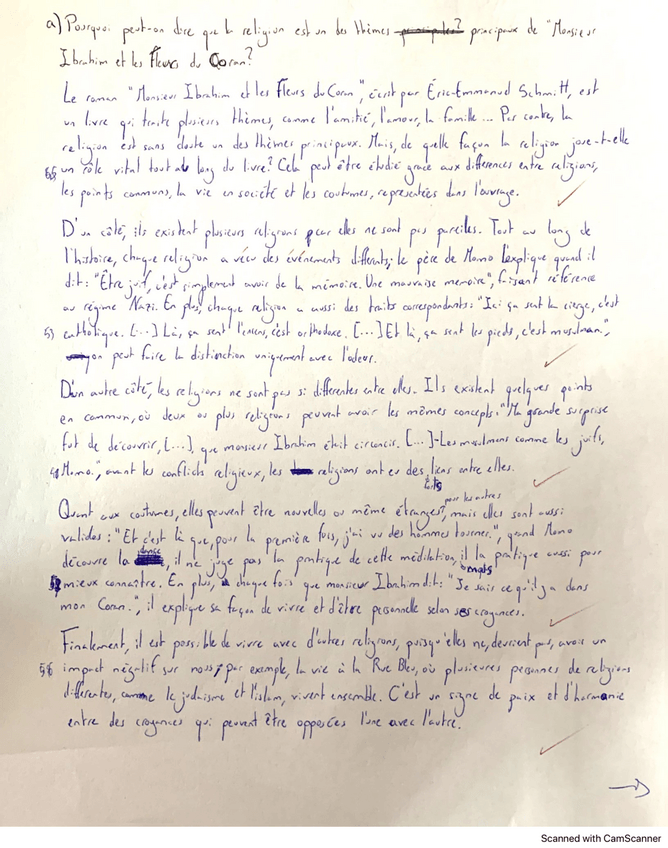 a) Pourquoi peut-on dire que la religion est un des thèmes principaux de "Monsieur
Ibrahim et les Fleurs du Coran?
Le roman "Monsieur Ibrahim et les Fleurs du Coran", écrit par Éric-Emmanuel Schmitt, est
un livre qui traite plusieurs thèmes, comme l'amitié, l'amour, la famille... Par contre, la
religion est sans doute un des thèmes principaux. Mais, de quelle façon la religion joue-t-elle
un rôle vital tout au long du livre? Cela peut être étudié grace aux differences entre religions,
les points communs, la vie en société et les coutumes, representées dans l'ouvrage.
D'un côté, ils existent plusieurs religions car elles ne sont pas pareilles. Tout au long de
l'histoire, chaque religion a vécu des événements differents; le père de Momo l'explique quand il
dit: "Être juif, c'est simplement avoir de la mémoire. Une mauvaise memoire", faisant référence
au régime Nazi. En plus, chaque religion a aussi des traits correspondants: "Ici ça sent le cierge, c'est
catholique. [...] Là, ça sent l'encens, c'est orthodoxe. [...] Et là, ça sent les pieds, c'est musulman.",
on peut faire la distinction uniquement avec l'odeur.
D'un autre côté, les religions ne sont pas si differentes entre elles. Ils existent quelques points
en commun, où deux ou plus religions peuvent avoir les mêmes concepts: "Ma grande surprise
fut de découvrir, [...], que monsieur Ibrahim était circoncis. [...] -Les musulmans comme les juifs,
Momo., avant les conflicts religieux, les religions ont eu des liens entre elles.
Quant aux costumes, elles peuvent être nouvelles ou même étranges pour les autres, mais elles sont aussi
valides: "Et c'est là que, pour la première fois, j'ai vu des hommes tourner.", quand Momo
découvre la dance, il ne juge pas la pratique de cette méditation, mais il la pratique aussi pour
mieux connaître. En plus, à chaque fois que monsieur Ibrahim dit: "Je sais ce qu'il y a dans
mon Coran.", il explique sa façon de vivre et d'être personnelle selon ses croyances.
Finalement, il est possible de vivre avec d'autres religions, puisqu'elles ne devrient pas, avoir un
impact négatif sur nous, par exemple, la vie à la Rue Bleu, où plusieures personnes de religions
differentes, comme le judaïsme et l'islam, vivent ensemble. C'est un signe de paix et d'harmonie
entre des croyances qui peuvent être opposées l'une avec l'autre.
Scanned with CamScanner